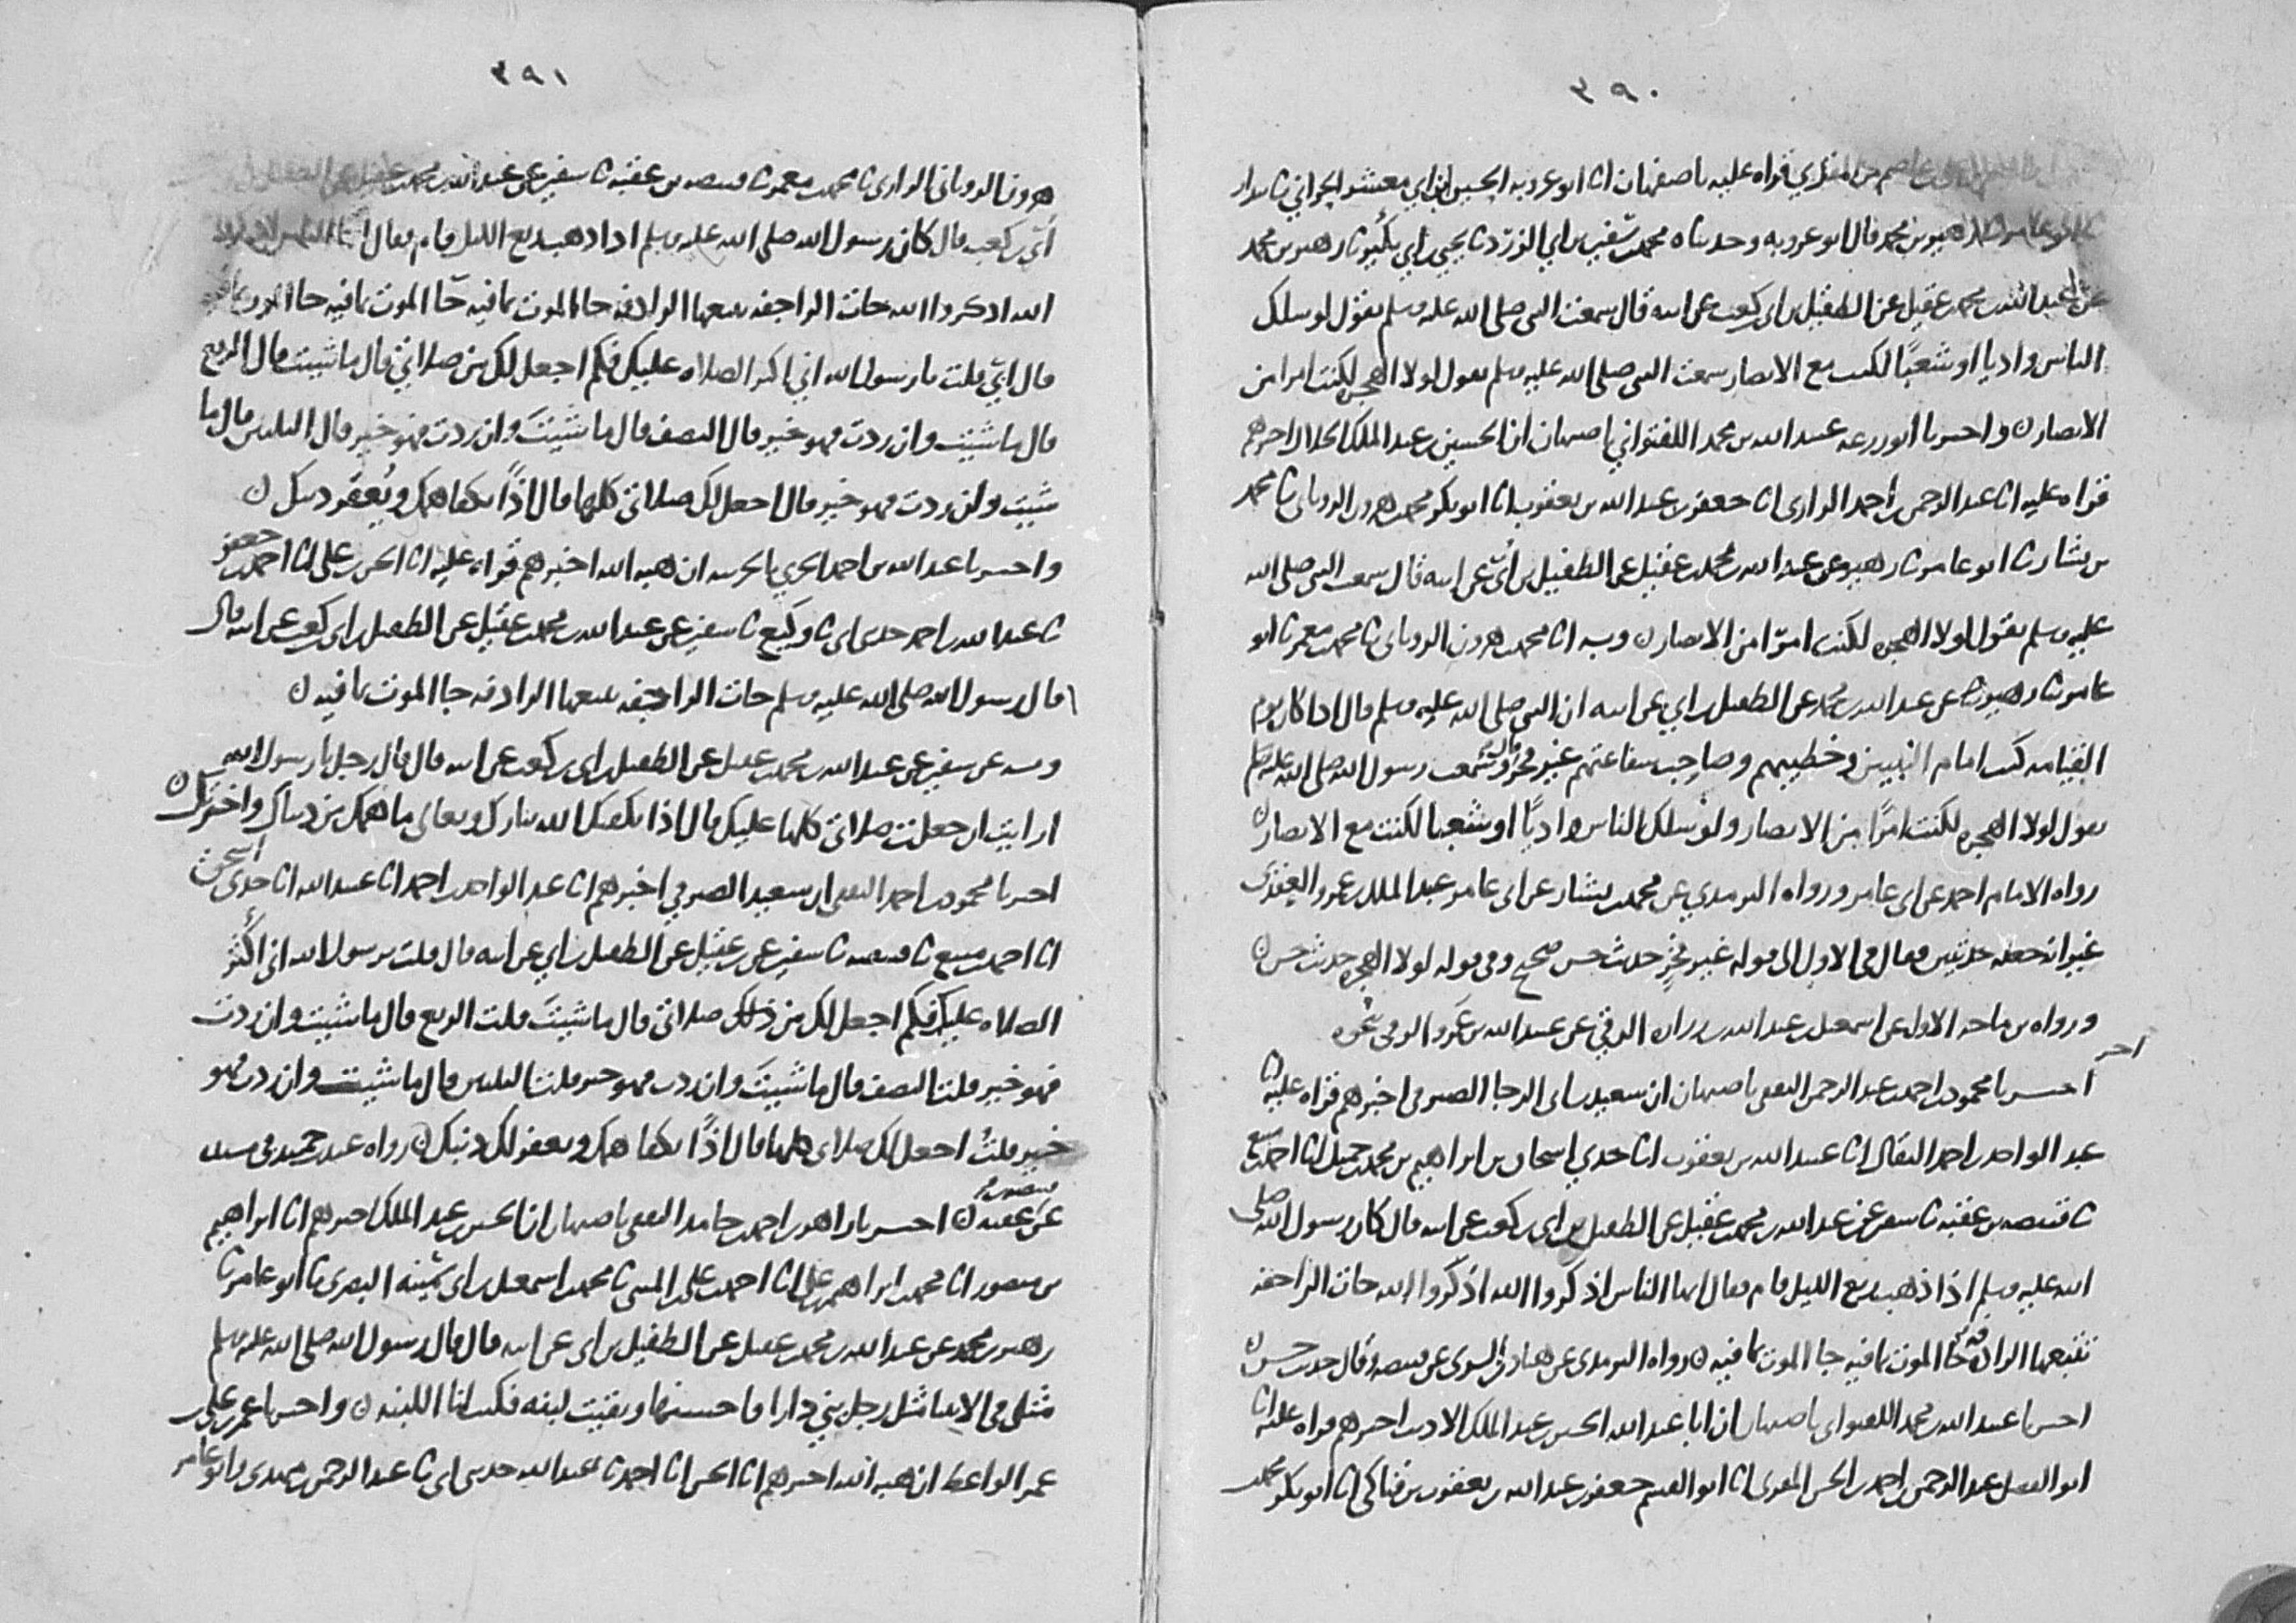 ٣٩٠
عاصم بن المقري قراه عليه باصبهان انا ابو عروبه الحسين بن ابي معشر الحراني نا بندار
نا ابو عامر نا زهير بن محمد قال ابو عروبه وحدثناه محمد بن سعيد نا يحيى بن ابي بكير نا زهير بن محمد
عن عبد الله بن محمد بن عقيل عن الطفيل بن ابي بن كعب عن ابيه قال سمعت النبي صلى الله عليه وسلم يقول لو سلك
الناس واديا او شعبا لكنت مع الانصار سمعت النبي صلى الله عليه وسلم يقول لولا الهجره لكنت امرا من
الانصار واخبرنا ابو زرعه عبيد الله بن محمد اللفتواني باصبهان ان الحسين بن عبد الملك الخلال اخبرهم
قراه عليه انا عبد الرحمن بن احمد الرازي انا جعفر بن عبد الله بن يعقوب انا ابو بكر محمد بن هرون الروياني نا محمد
بن بشار نا ابو عامر نا زهير عن عبد الله بن محمد بن عقيل عن الطفيل بن أبيّ عن ابيه قال سمعت النبي صلى الله
عليه وسلم يقول لولا الهجره لكنت امرا من الانصار وبه انا محمد بن هرون الروياني نا محمد بن معمر نا ابو
عامر نا زهير عن عبد الله بن محمد عن الطفيل بن ابي عن ابيه ان النبي صلى الله عليه وسلم قال اذا كان يوم
القيامه كنت امام النبيين وخطيبهم وصاحب شفاعتهم غير فخر قال وسمعت رسول الله صلى الله عليه وسلم
يقول لولا الهجره لكنت امرًا من الانصار ولو سلك الناس واديًا او شعبا لكنت مع الانصار
رواه الامام احمد عن ابي عامر ورواه الترمذي عن محمد بن بشار عن ابي عامر عبد الملك بن عمرو العقدي
غير انه جعله حديثين وقال في الاول الى قوله غير فخرٍ حديث حسن صحيح وفي قوله لولا الهجره حديث حسن
ورواه بن ماجه الاول عن اسمعيل بن عبد الله بن زراره الرقي عن عبيد الله بن عمرو الرقي نحوه
اخر
اخبرنا محمود بن احمد بن عبد الرحمن الثقفي باصبهان ان سعيد بن ابي الرجا الصيرفي اخبرهم قراه عليه انا
عبد الواحد بن احمد البقال انا عبيد الله بن يعقوب انا جدي اسحاق بن ابراهيم بن محمد بن جميل انا احمد بن منيع
نا قبيصه بن عقبه نا سفين عن عبد الله بن محمد بن عقيل عن الطفيل بن ابي بن كعب عن ابيه قال كان رسول الله صلى
الله عليه وسلم اذا ذهب ربع الليل قام فقال ايها الناس اذكروا الله اذكروا الله جات الراجفه
تتبعها الرادفه جا الموت بما فيه جا الموت بما فيه رواه الترمذي عن هناد بن السري عن قبيصه وقال حديث حسن
اخبرنا عبيد الله بن محمد اللفتواني باصبهان ان ابا عبد الله الحسين بن عبد الملك الاديب اخبرهم قراه عليه انا
ابو الفضل عبد الرحمن بن احمد بن الحسن المقري انا ابو القسم جعفر بن عبد الله بن يعقوب بن فناكي انا ابو بكر محمد بن
٣٩١
هرون الروياني الرازي نا محمد بن معمر نا قبيصه بن عقبه نا سفين عن عبد الله بن محمد بن عقيل عن الطفيل بن
أبيّ بن كعب قال كان رسول الله صلى الله عليه وسلم اذا ذهب ربع الليل قام فقال يا ايها الناس اذكروا
الله اذكروا الله جات الراجفه تتبعها الرادفه جا الموت بما فيه جا الموت بما فيه جا الموت بما فيه
قال ابيّ قلت يا رسول الله اني اكثر الصلاه عليك فكم اجعل لك من صلاتي قال ما شيت قال الربع
قال ما شيت وان زدت فهو خير قال النصف قال ما شيتَ وان زدت فهو خير قال الثلثين قال ما
شيت وان زدت فهو خير قال اجعل لك صلاتي كلها قال اذًا تكفا همك ويُغفر ذنبك
واخبرنا عبد الله بن احمد الحربي بالحربيه ان هبه الله اخبرهم قراه عليه انا الحسن بن علي انا احمد بن جعفر
نا عبد الله بن احمد حدثني ابي نا وكيع نا سفين عن عبد الله بن محمد بن عقيل عن الطفيل بن ابي بن كعب عن ابيه قال
قال رسول الله صلى الله عليه وسلم جات الراجفه تتبعها الرادفه جا الموت بما فيه
وبه عن سفين عن عبد الله بن محمد بن عقيل عن الطفيل بن ابي بن كعب عن ابيه قال قال رجل يا رسول الله
ارايت ان جعلت صلاتي كلها عليك قال اذا يكفيك الله تبارك وتعالى ما همك من دنياك واخرتك
اخبرنا محمود بن احمد الثقفي ان سعيد الصيرفي اخبرهم انا عبد الواحد بن احمد انا عبيد الله انا جدي اسحق
انا احمد بن منيع نا قبيصه نا سفين عن بن عقيل عن الطفيل بن ابي عن ابيه قال قلت يرسول الله اني اكثر
الصلاه عليك فكم اجعل لك من ذلك صلاتي قال ما شيتَ قلت الربع قال ما شيت وان زدت
فهو خير قلت النصف قال ما شيتَ وان زدت فهو خير قلت الثلثين قال ما شيت وان زدت فهو
خير قلتُ اجعل لك صلاتي كلها قال اذًا تكفا همك ويغفر لك ذنبك رواه عبد بن حميد في مسنده
عن قبيصه بن عقبه اخبرنا زاهر بن احمد بن حامد الثقفي باصبهان ان الحسين بن عبد الملك اخبرهم انا ابراهيم
بن منصور انا محمد بن ابراهيم بن علي انا احمد بن علي بن المثنى نا محمد بن اسمعيل بن ابي سمينه البصري نا ابو عامر نا
زهير بن محمد عن عبد الله بن محمد بن عقيل عن الطفيل بن ابي عن ابيه قال قال رسول الله صلى الله عليه وسلم
مثلي في الانبيا مثل رجل بنى دارا فاحسنها وبقيت لبنه فكنت انا اللبنه واخبرنا عمر بن علي بن
عمر الواعظ ان هبه الله اخبرهم انا الحسن انا احمد نا عبد الله حدثني ابي نا عبد الرحمن بن مهدي وابو عامر